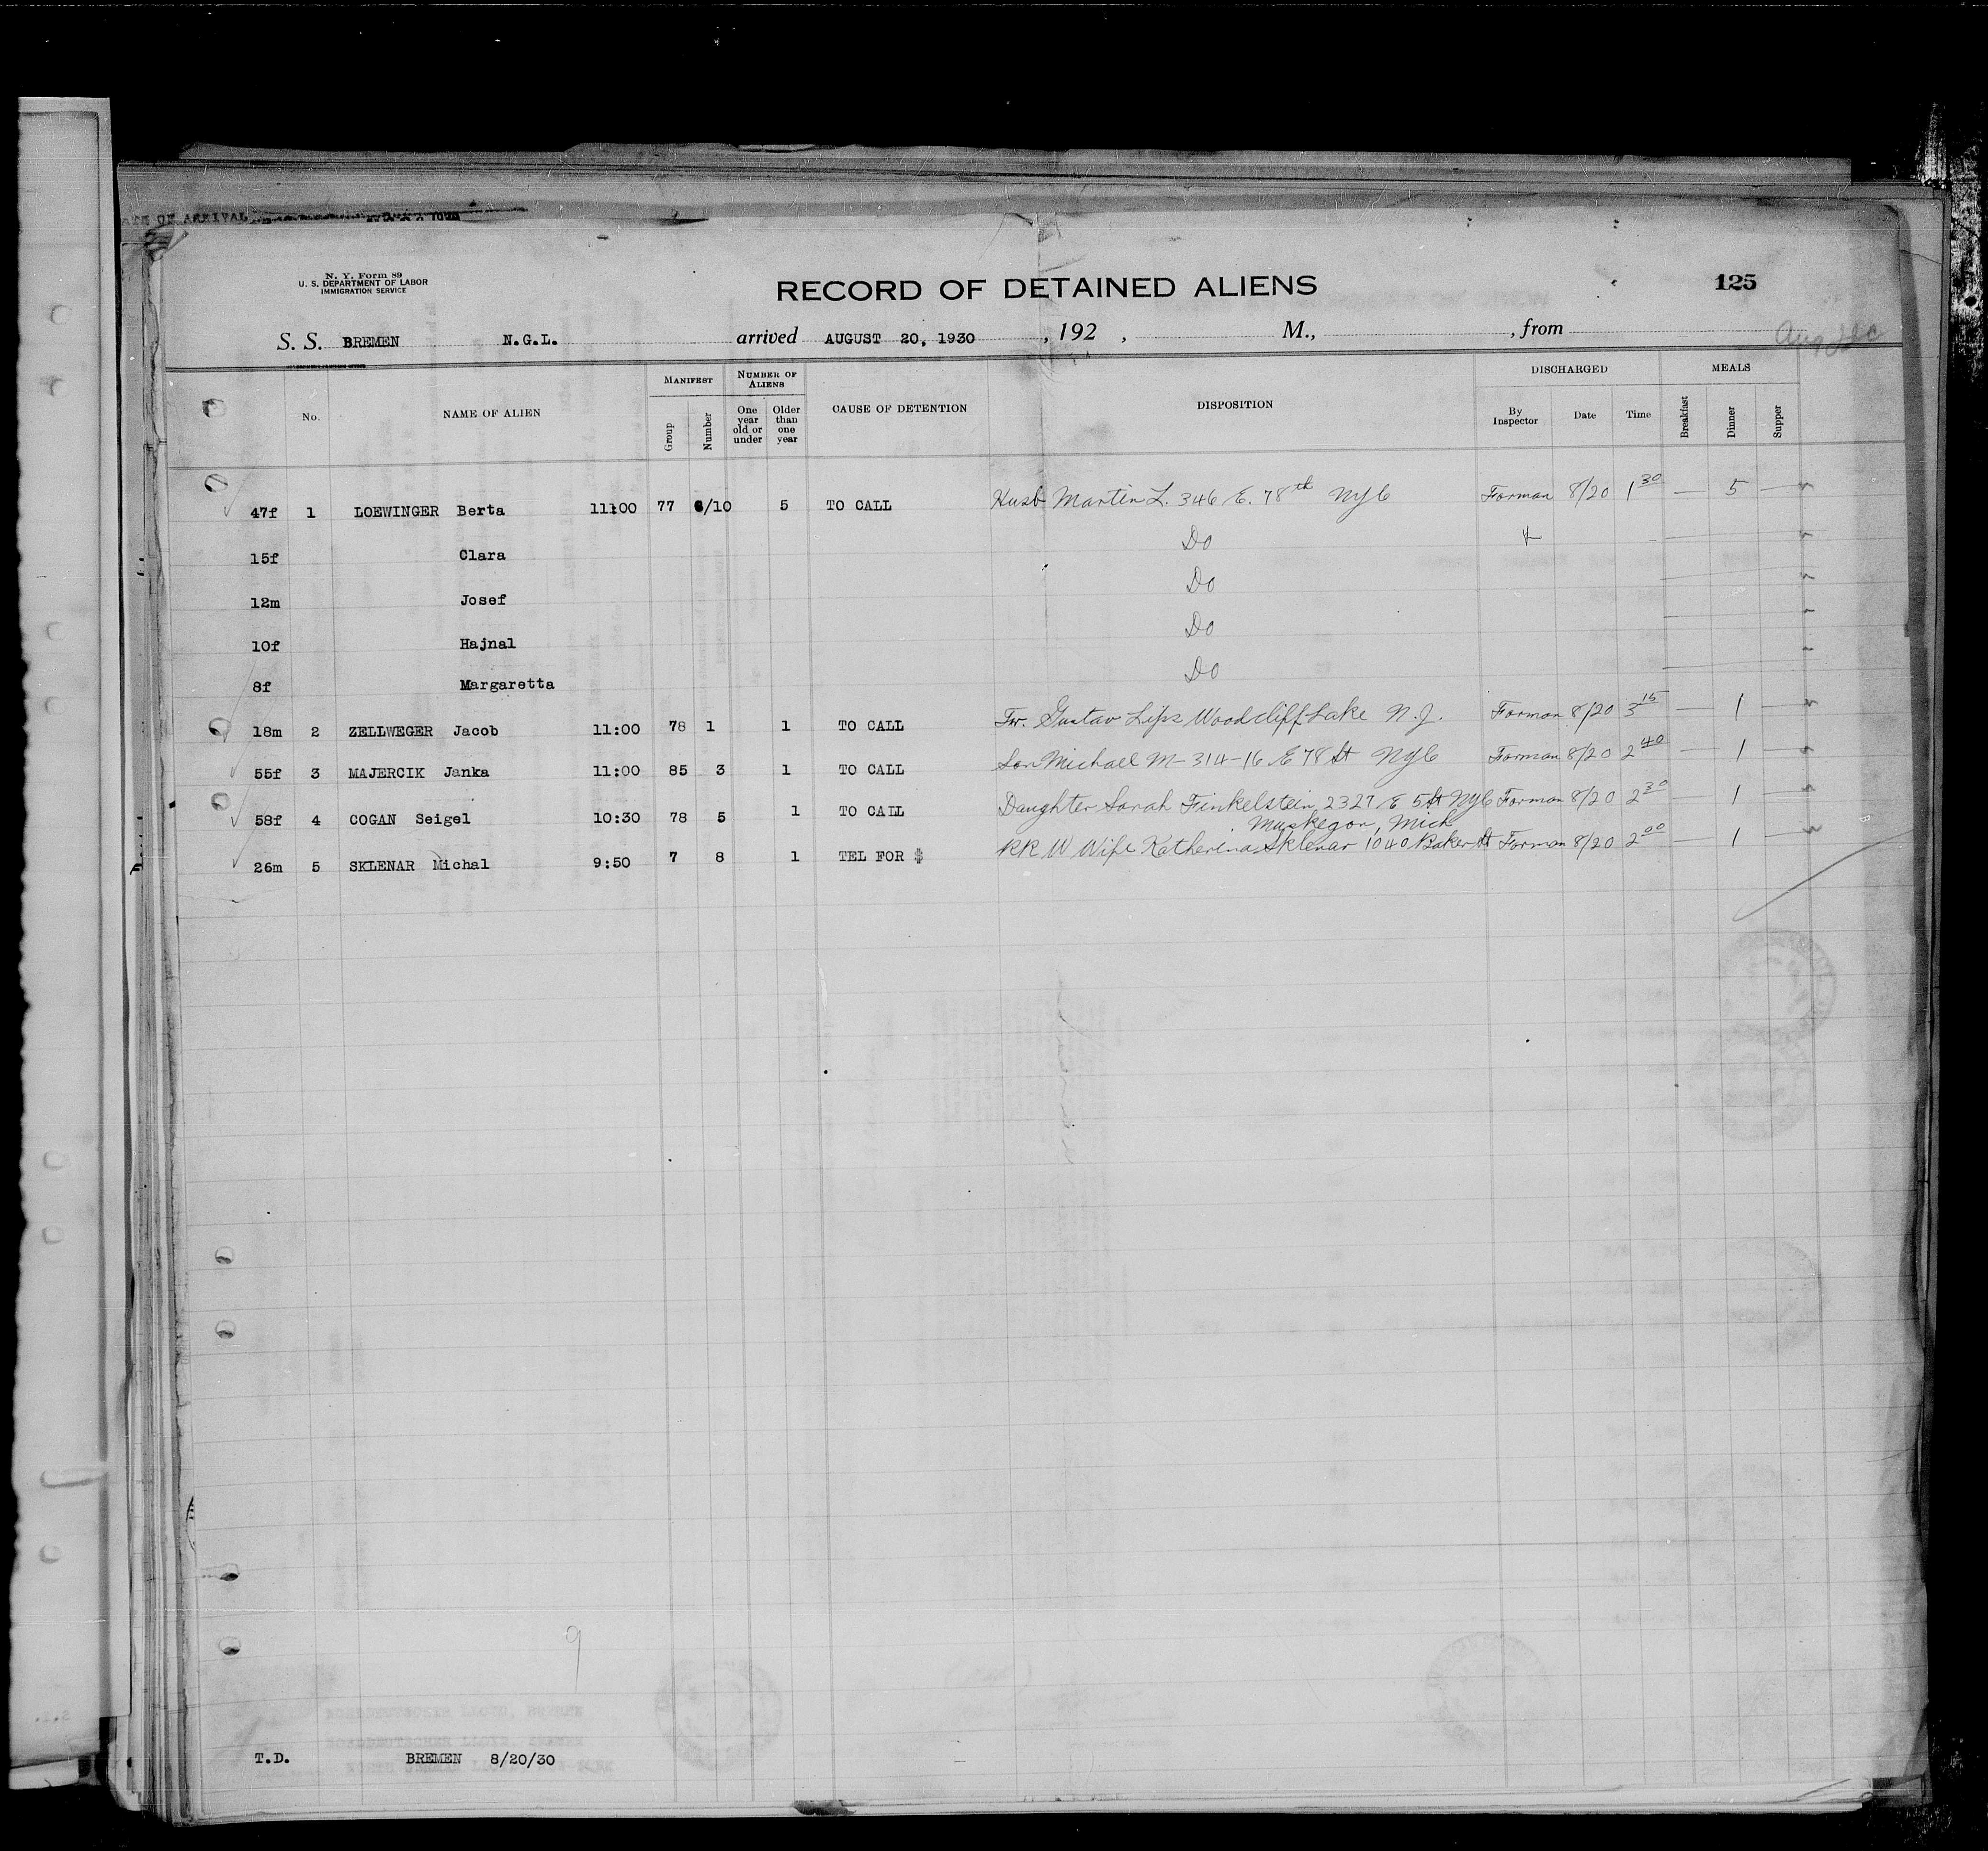 DATE OF ARRIVAL
N. Y. Form 89
U. S. DEPARTMENT OF LABOR
IMMIGRATION SERVICE
RECORD OF DETAINED ALIENS
125
S. S. BREMEN N.G.L. arrived AUGUST 20, 1930 , 192 , M., , from
No. NAME OF ALIEN MANIFEST Group Number NUMBER OF ALIENS One year old or under Older than one year CAUSE OF DETENTION DISPOSITION DISCHARGED By Inspector Date Time MEALS Breakfast Dinner Supper
47f 1 LOEWINGER Berta 11:00 77 6/10 5 TO CALL Husb Martin L. 346 E. 78th NYC Forman 8/20 1 30 — 5 —
15f Clara Do
12m Josef Do
10f Hajnal Do
8f Margaretta Do
18m 2 ZELLWEGER Jacob 11:00 78 1 1 TO CALL Fr. Gustav Lips Woodcliff Lake N.J. Forman 8/20 3 15 — 1 —
55f 3 MAJERCIK Janka 11:00 85 3 1 TO CALL Son Michael M— 314-16 E 78 St NYC Forman 8/20 2 40 — 1 —
58f 4 COGAN Seigel 10:30 78 5 1 TO CALL Daughter Sarah Finkelstein, 2327 E 5 St NYC Forman 8/20 2 30 — 1 —
Muskegon, Mich
26m 5 SKLENAR Michal 9:50 7 8 1 TEL FOR $ RR W Wife Katherina Sklenar 1040 Baker St Forman 8/20 2 00 — 1 —
9
T.D. BREMEN 8/20/30